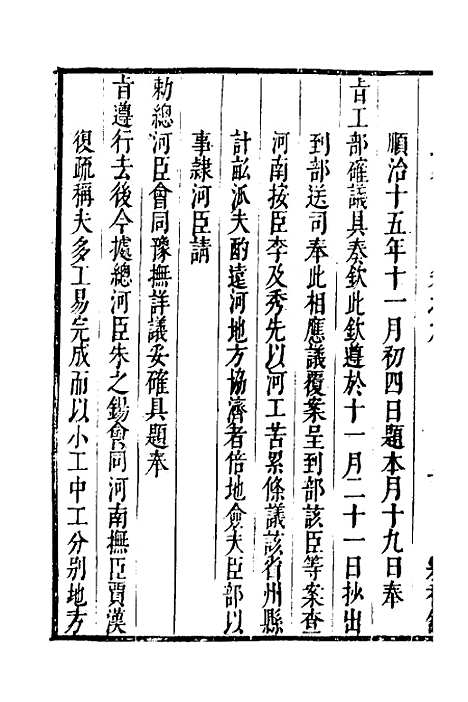 順治十五年十一月初四日題本月十九日奉
旨工部確議具奏欽此欽遵於十一月二十一日抄出
到部送司奉此相應議覆案呈到部該臣等案查
河南按臣李及秀先以河工苦累條議該省州縣
計畝派夫酌遠河地方協濟者倍地僉夫臣部以
事隸河臣請
勅總河臣會同豫撫詳議妥確具題奉
旨遵行去後今據總河臣朱之錫會同河南撫臣賈漢
復疏稱夫多工易完成而以小工中工分別地方